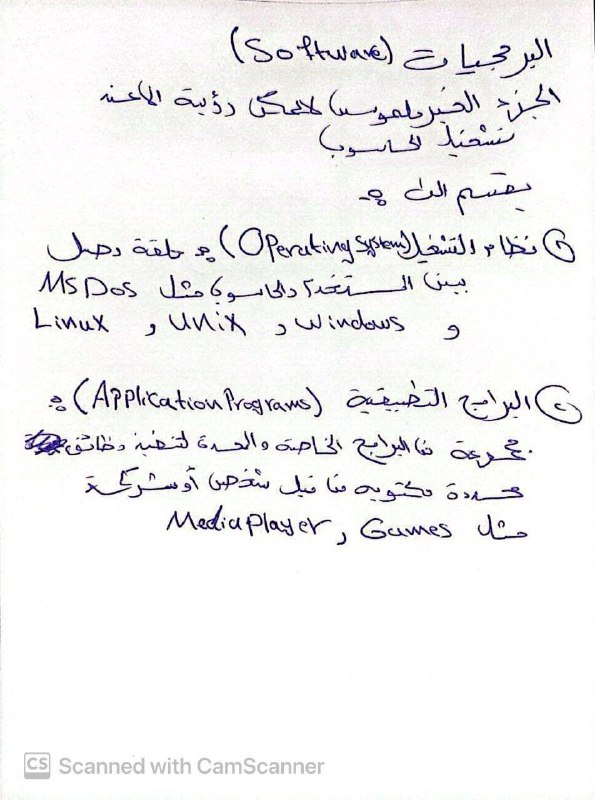 البرمجيات (Software)
الجزء الغير ملموس لا يمكن رؤية الا عند
تشغيل الحاسوب
يقسم الى :-
① نظام التشغيل (Operating System) : حلقة وصل
بين المستخدم والحاسوب مثل MS Dos
و Windows و Unix و Linux
② البرامج التطبيقية (Application Programs) :
مجموعة من البرامج الخاصة والمعدة لتنفيذ وظائف
محددة مكتوبه من قبل شخص أو شركة
مثل Games و Media Player
CS Scanned with CamScanner